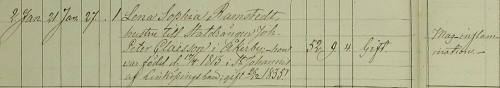 2 Jan 21 Jan 27. 1 Lena Sophia Ramstedt,
hustru till Statdrängen Joh.
Peter Claesson i Åkerby, hon
var född d. 17/4 1803 i St Johannis 52 9 4 Gift Mag-inflam-
af Linköpings län; gift 26/12 1835. mation.